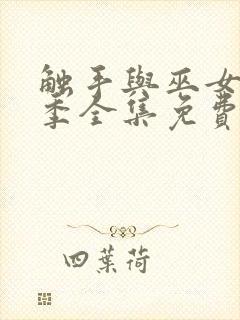 触手與巫女
季全集免費
四葉荷